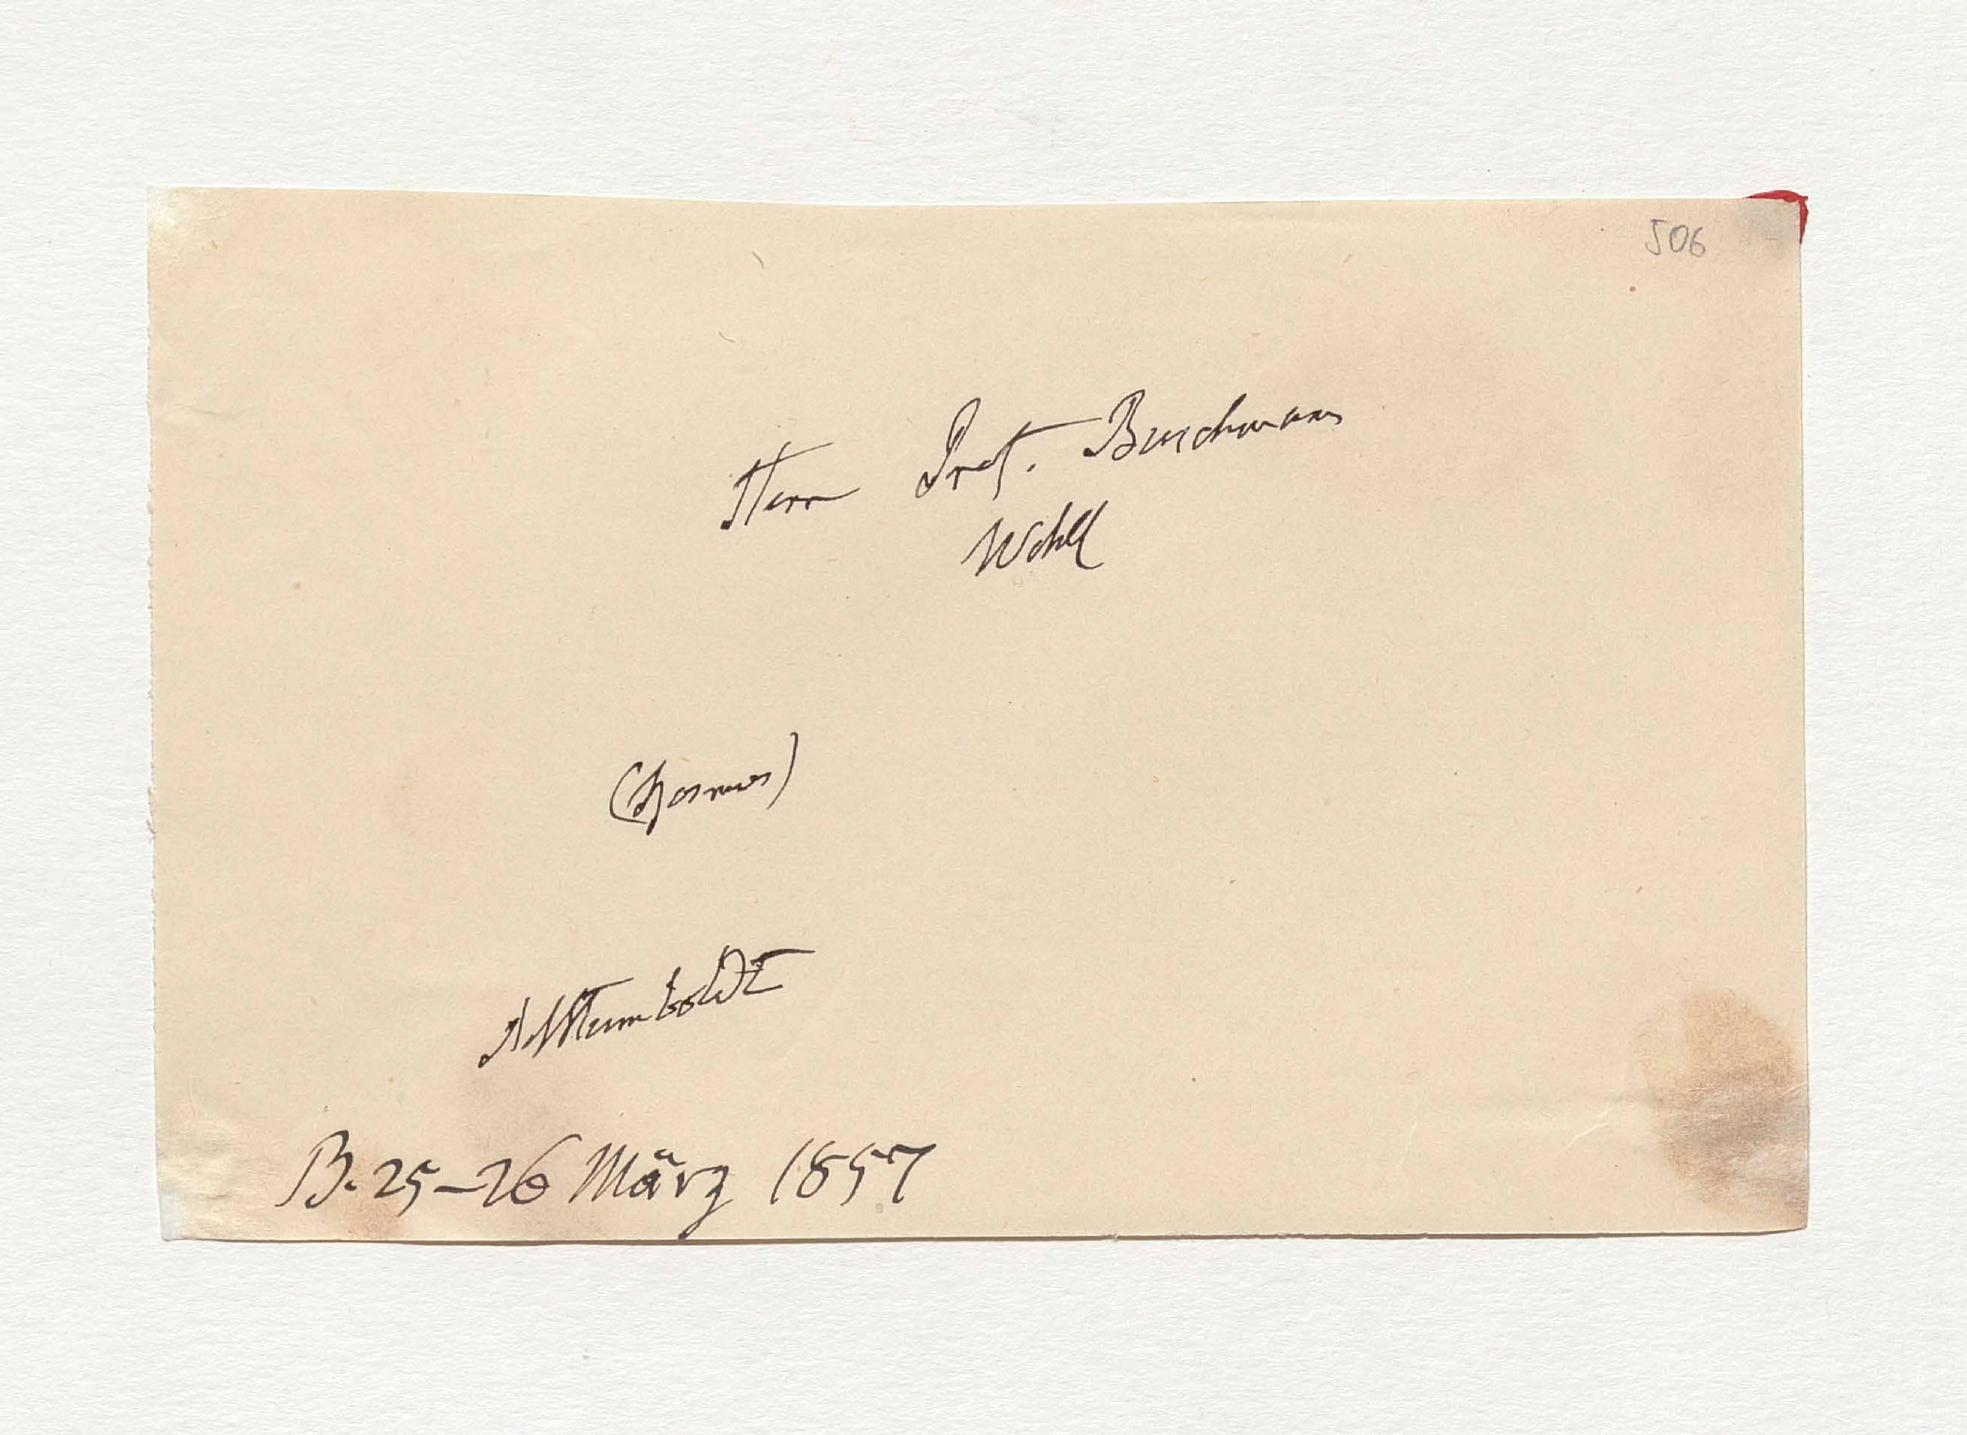 506
Herrn Prof. Buschmann
Wohl
(Kosmos)
AvHumboldt
B. 25–26 März 1857